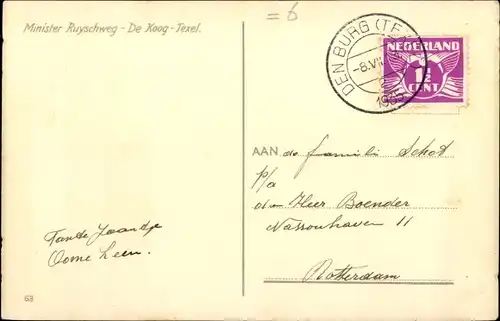 = 6
Minister Ruyschweg - De Koog - Texel.
DEN BURG (TE
-8.VII
1935
NEDERLAND
1½
CENT
AAN de familie Schot
p/a
den Heer Boender
Nassouhaven 11
Rotterdam
Tante Jaantje
Oome Leen.
63